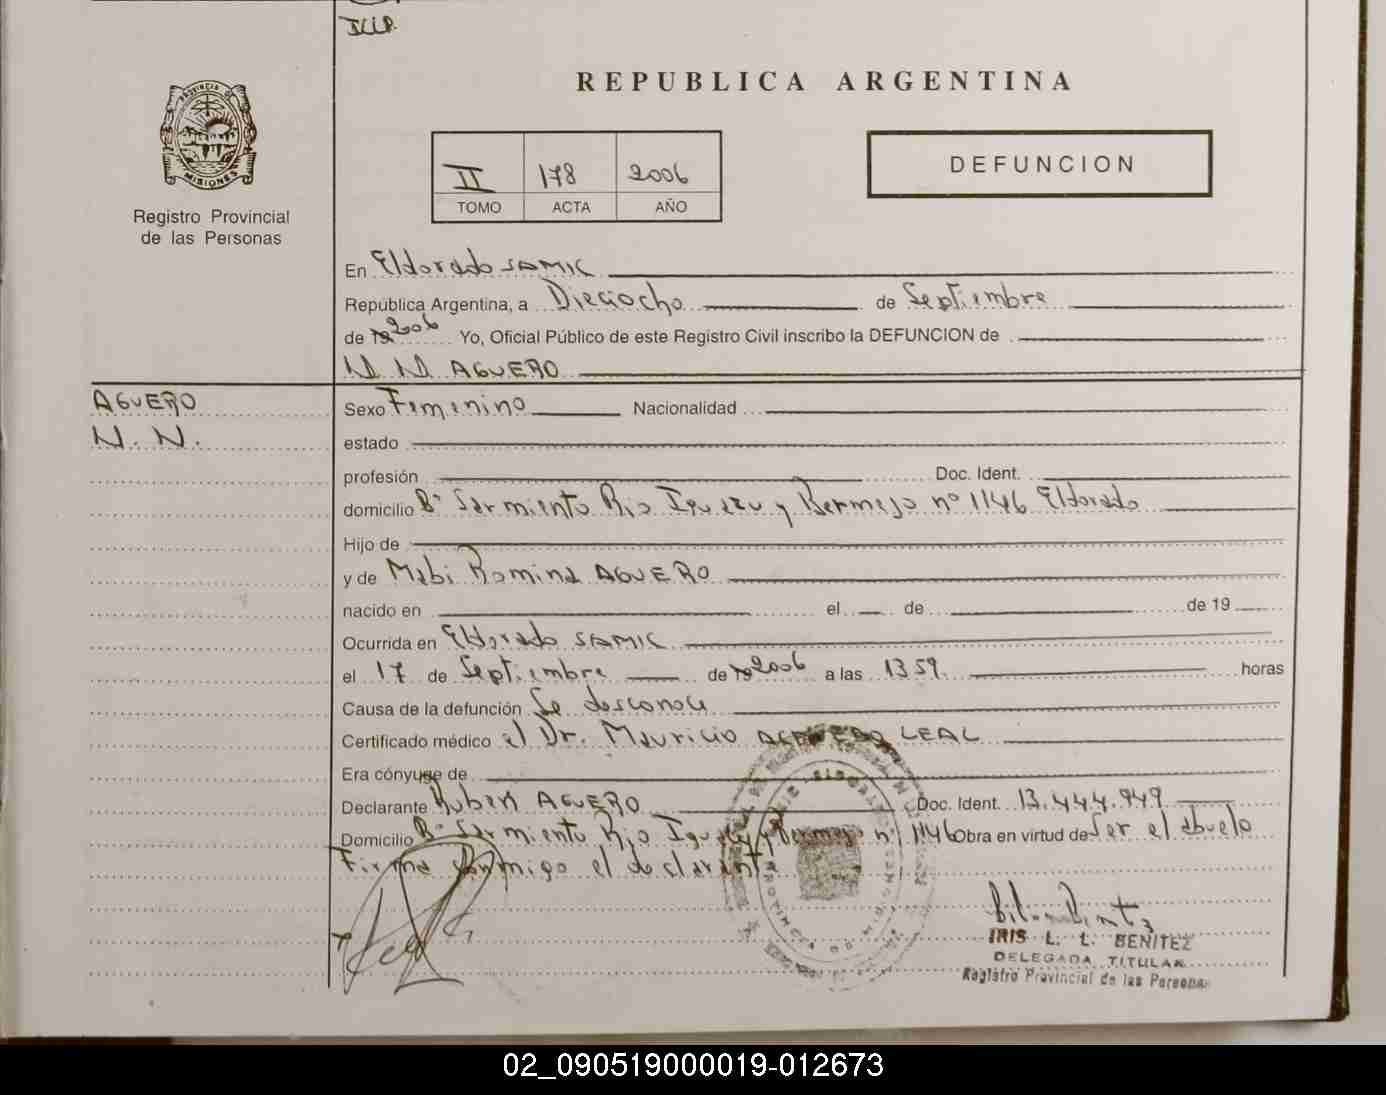 REPUBLICA ARGENTINA
PROVINCIA DE
MISIONES
Registro Provincial
de las Personas
II 178 2006
TOMO ACTA AÑO
DEFUNCION
En Eldorado SAMIC
República Argentina, a Dieciocho de Septiembre
de 2006 Yo, Oficial Público de este Registro Civil inscribo la DEFUNCION de
N N AGUERO
AGUERO
N. N.
Sexo Femenino Nacionalidad
estado
profesión Doc. Ident.
domicilio Bº Sarmiento Rio Iguazu y Bermejo nº 1146 Eldorado
Hijo de
y de Mabi Romina AGUERO
nacido en el de de 19
Ocurrida en Eldorado SAMIC
el 17 de Septiembre de 2006 a las 13 59 horas
Causa de la defunción Se desconoce
Certificado médico el Dr. Mauricio ACEVEDO LEAL
Era cónyuge de
Declarante Ruben AGUERO Doc. Ident. 13.444.949
Domicilio Bº Sarmiento Rio Iguazu y Bermejo nº 1146 Obra en virtud de Ser el abuelo
Firma conmigo el declarante
IRIS L. L. BENITEZ
DELEGADA TITULAR
Registro Provincial de las Personas
02_090519000019-012673